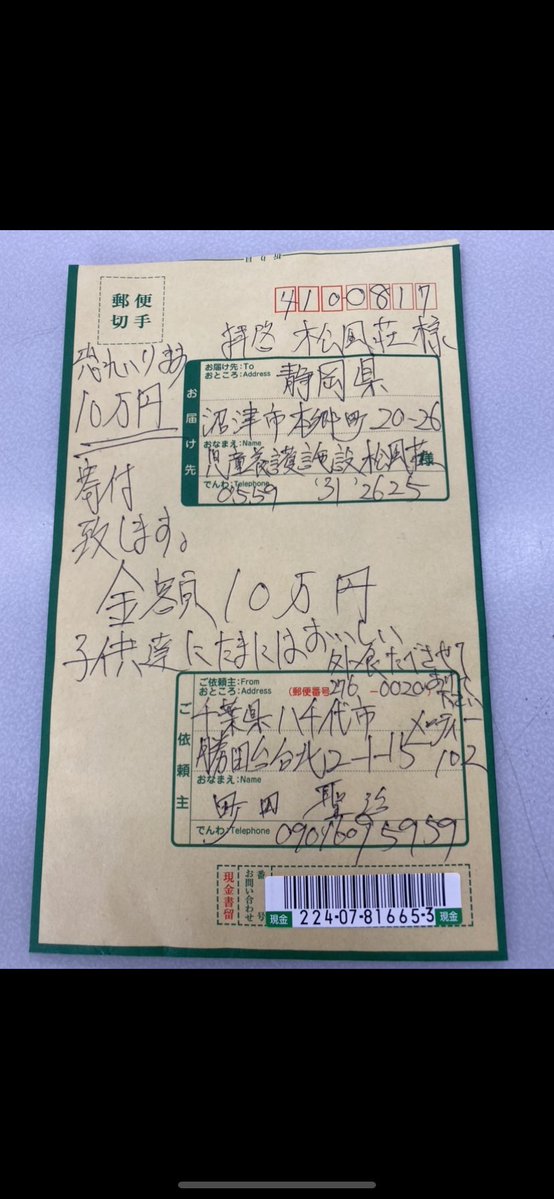 折り目
郵便
切手
4100817
拝啓 松風荘様
恐れいります
10万円
寄付
致します。
お届け先
お届け先:To
おところ:Address
静岡県
沼津市本郷町20-26
おなまえ:Name
児童養護施設松風荘様
でんわ:Telephone
0559 (31) 2625
金額10万円
子供達にたまにはおいしい
外食たべさせて
あげて
下さい
ご依頼主
ご依頼主:From
おところ:Address
(郵便番号 276-0020)
千葉県八千代市
勝田台北2-1-15
102
おなまえ:Name
町田
でんわ:Telephone
09096095959
現金書留
お問い合わせ
番号
現金 224-07-81665-3 現金